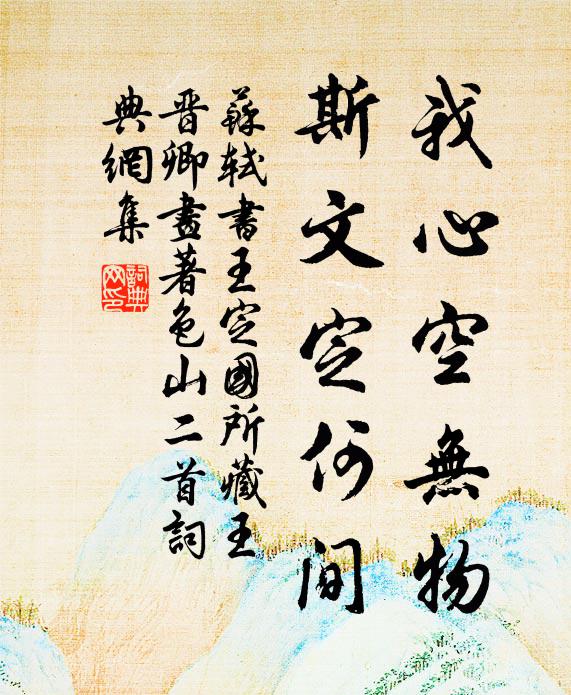 我心空無物
斯文定何間
蘇軾書王定國所藏王
晉卿畫著色山二首詞
典網集
詞典
网印